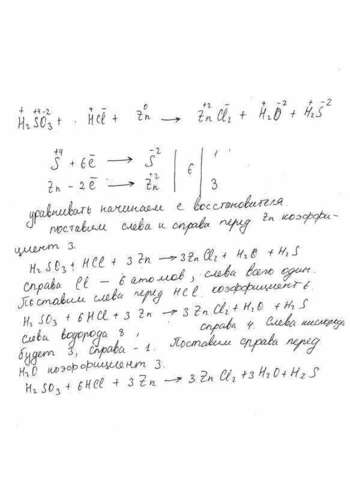 + +4 -2 + - 0 +2 - + -2 + -2
H₂SO₃ + . HCl + Zn → ZnCl₂ + H₂O + H₂S
+4 -2
S + 6ē → S | | 1
0 +2 6
Zn - 2ē → Zn | | 3
уравнивать начинаем с восстановителя
поставим слева и справа перед Zn коэффи-
циент 3.
H₂SO₃ + HCl + 3 Zn → 3ZnCl₂ + H₂O + H₂S
справа Cl - 6 атомов, слева всего один.
Поставим слева перед HCl коэффициент 6.
H₂SO₃ + 6HCl + 3 Zn → 3ZnCl₂ + H₂O + H₂S
слева водорода 8, справа 4. Слева кислорода
будет 3, справа - 1. Поставим справа перед
H₂O коэффициент 3.
H₂SO₃ + 6HCl + 3Zn → 3ZnCl₂ + 3H₂O + H₂S